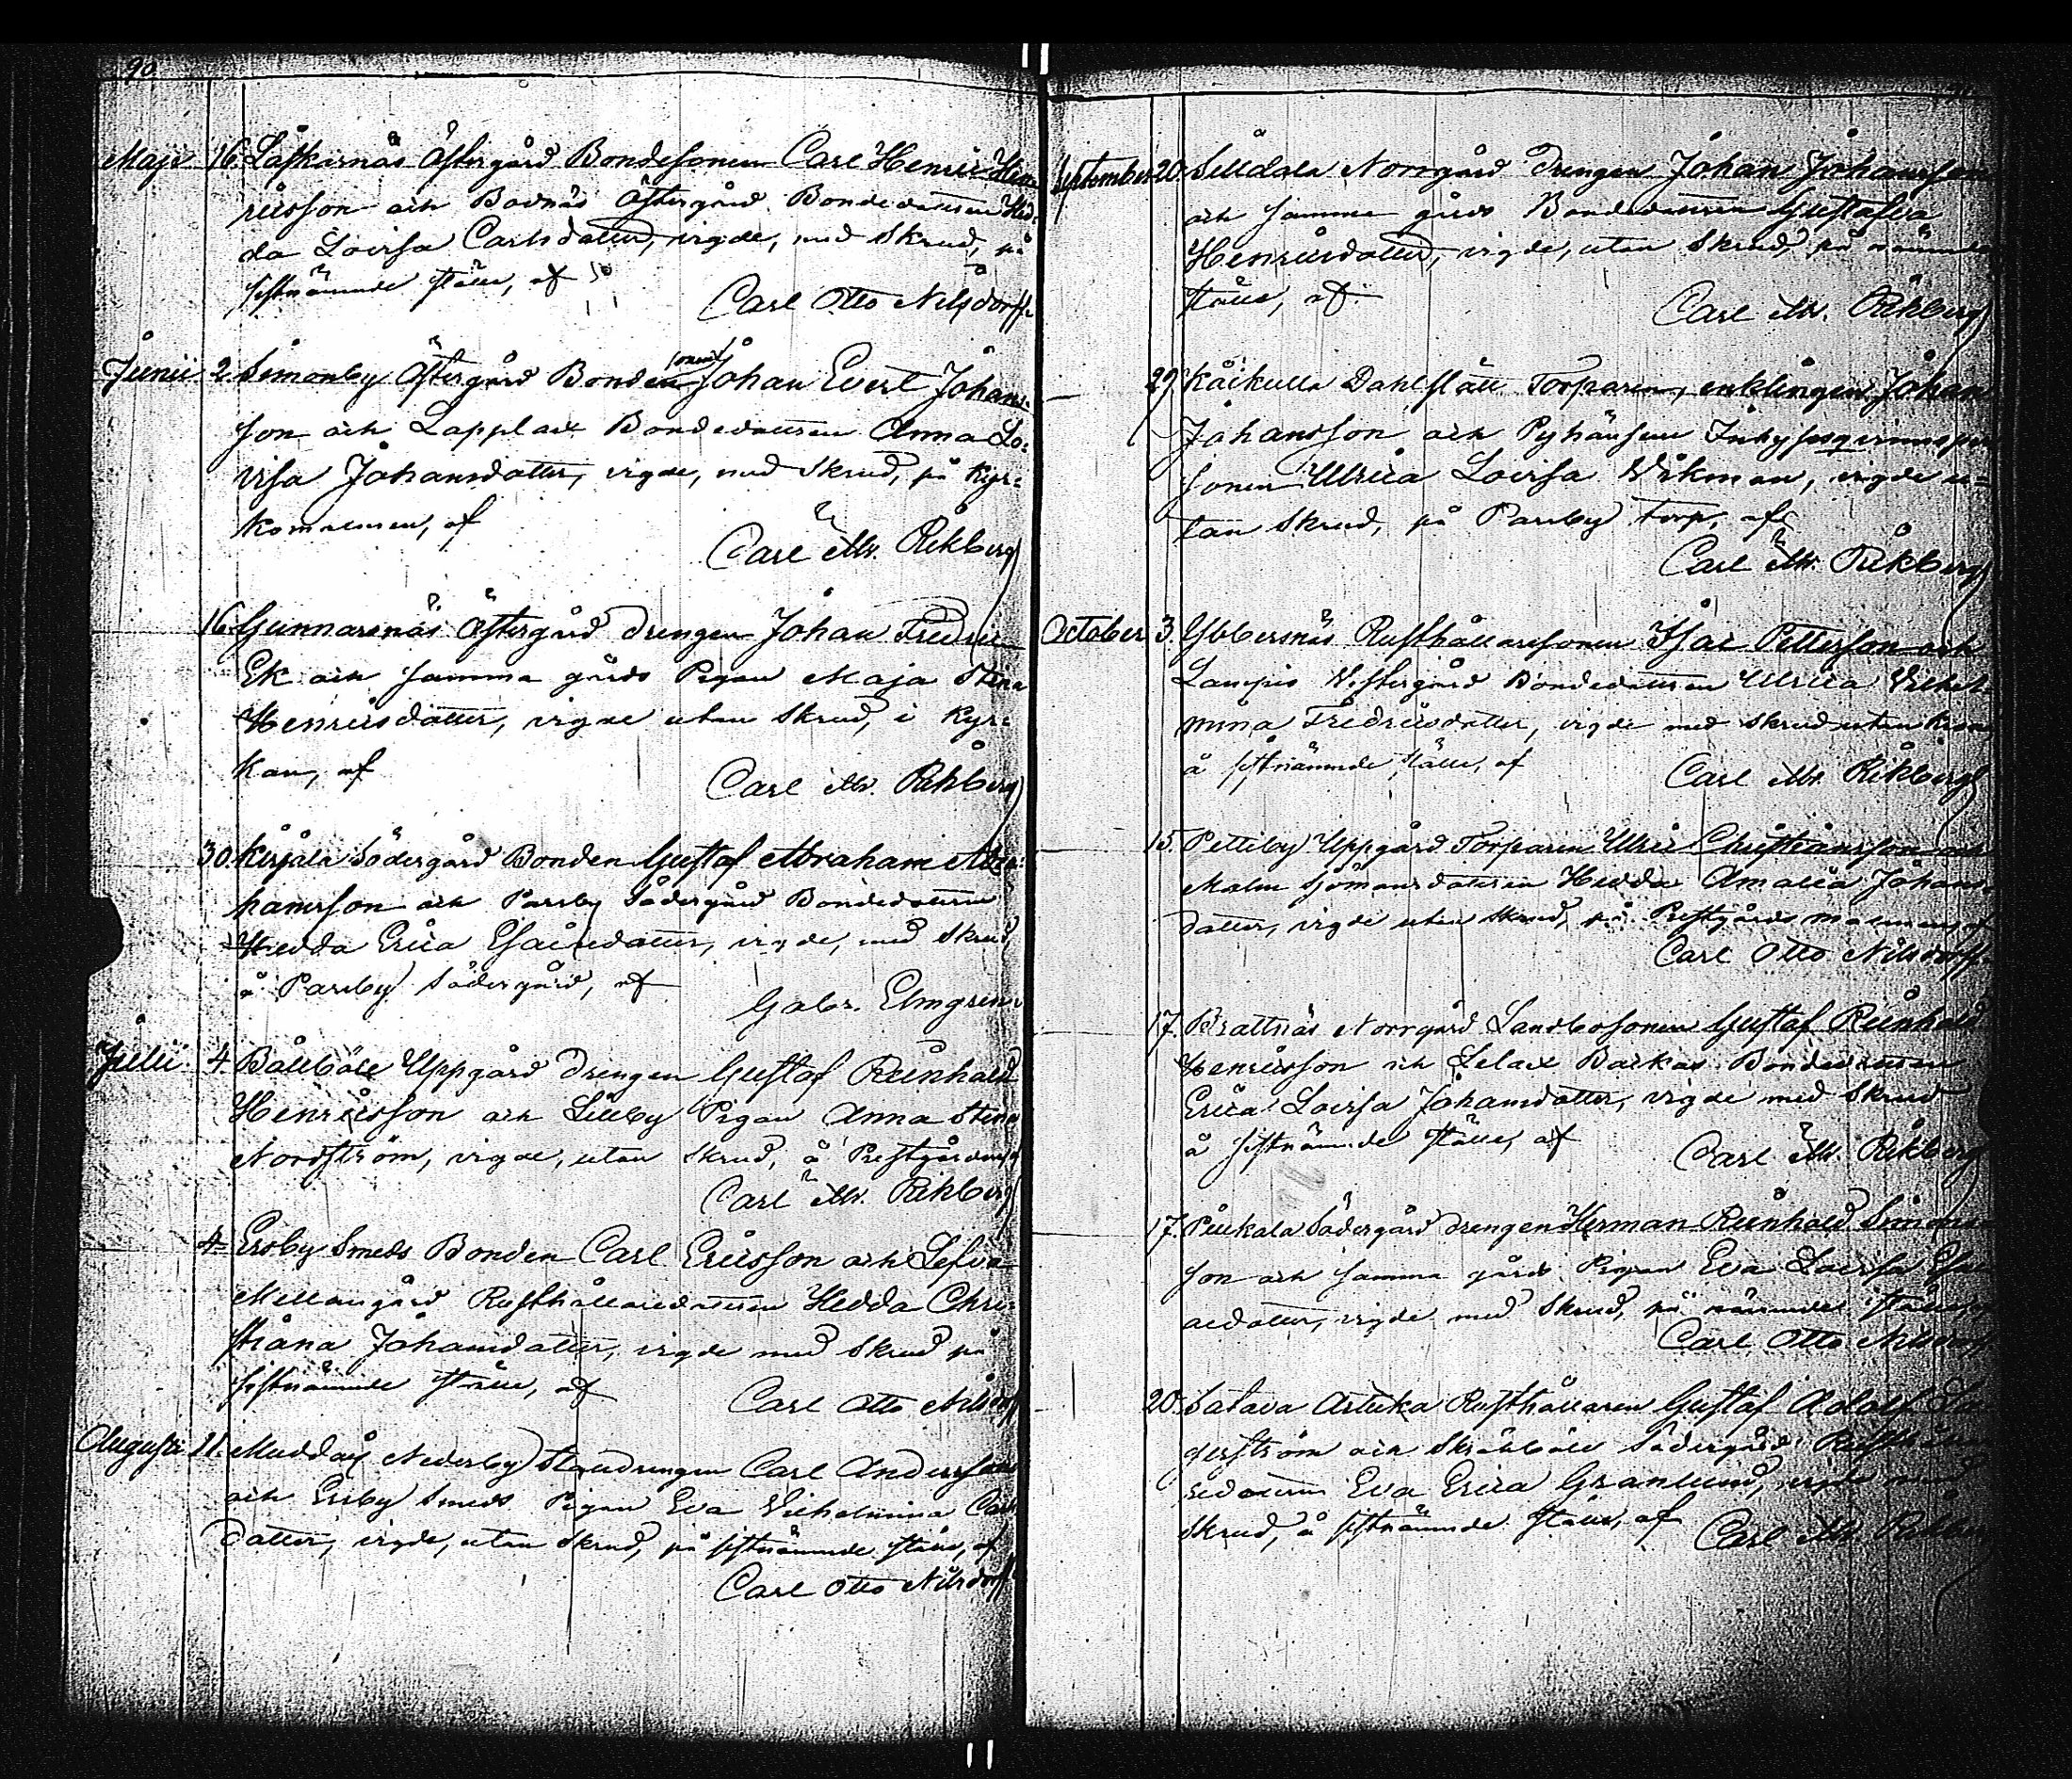 90.
Maji 16. Lofkarnäs Östergård Bondesonen Carl Henric Hen-
ricsson och Bodnäs Östergård Bondedottren Hed-
da Lovisa Carlsdotter, vigde, med Skrud, på
sistnämnde ställe, af
Carl Otto Nilsdorff.
Junii 2. Simonby Östergård Bondesonen Johan Evert Johans-
son och Lapplax Bondedottren Anna Lo-
visa Johansdotter, vigde, med Skrud, på Kyr-
komalmen, af
Carl M. Rikberg
16. Gunnarsnäs Östergård drengen Johan Fredric
Ek och samma gårds Pigan Maja Stina
Henricsdotter, vigde utan Skrud, i Kyr-
kan, af
Carl M. Rikberg
30. Kirjala Södergård Bonden Gustaf Abraham Abra-
hamsson och Parsby Södergård Bondedottren
Hedda Erica Esaiædotter, vigde, med Skrud,
å Parsby Södergård, af
Gabr. Elmgren.
Julii 4. Bollböle Uppgård drengen Gustaf Reinhold
Henricsson och Lillby Pigan Anna Stina
Nordström, vigde, utan Skrud, å Prestgården, af
Carl M. Rikberg
4. Ersby Smeds Bonden Carl Ericsson och Lefva
Mellangård Rusthållaredottren Hedda Chri-
stiana Johansdotter, vigde med Skrud på
sistnämnde ställe, af
Carl Otto Nilsdorff
Augusti 11. Muddais Nederby drengen Carl Andersson
och Ersby Smeds Pigan Eva Vilhelmina Carls
dotter, vigde, utan Skrud, på sistnämnde ställe, af
Carl Otto Nilsdorff
September 20. Silldala Norrgård Drengen Johan Johansson
och samma gårds Bondedottren Gustafva
Henricsdotter, vigde, utan Skrud, på nämnde
ställe, af
Carl M. Rikberg
29. Kåikulla Dahlslätt Torparen, enklingen Johan
Johansson och Pyhänsuu Inhysesqvinnsper
sonen Ulrica Lovisa Vikman, vigde u-
tan Skrud, på Parsby torp, af
Carl M. Rikberg
October 3. Ybbersnäs Rusthållaresonen Isac Petterson och
Lampis Vestergård Bondedottren Ulrica Vilhel-
mina Fredricsdotter, vigde med Skrud utan Krona,
å sistnämnde ställe, af
Carl M. Rikberg
15. Pettiby Uppgård Torparen Ulric Christiansson och
Malm Sjömansdottren Hedda Amalia Johans-
dotter, vigde utan Skrud, på Prestgårds malmen, af
Carl Otto Nilsdorff.
17. Brattnäs Norrgård Landbosonen Gustaf Reinhold
Henricsson och Lelax Backas Bondedottren
Erica Lovisa Johansdotter, vigde med Skrud
å sistnämnde ställe, af
Carl M. Rikberg
17. Piukala Södergård drengen Herman Reinhold Simons
son och samma gårds Pigan Eva Lovisa Esai
ædotter, vigde med Skrud, på nämnde ställe, af
Carl Otto Nilsdorff
20. Satava Artuka Rusthållaren Gustaf Adolf
gerström och Skråbböle Södergård Rusthålla
redottren Eva Erica Granlund, vigde med
Skrud, å sistnämnde ställe, af
Carl M. Rikberg